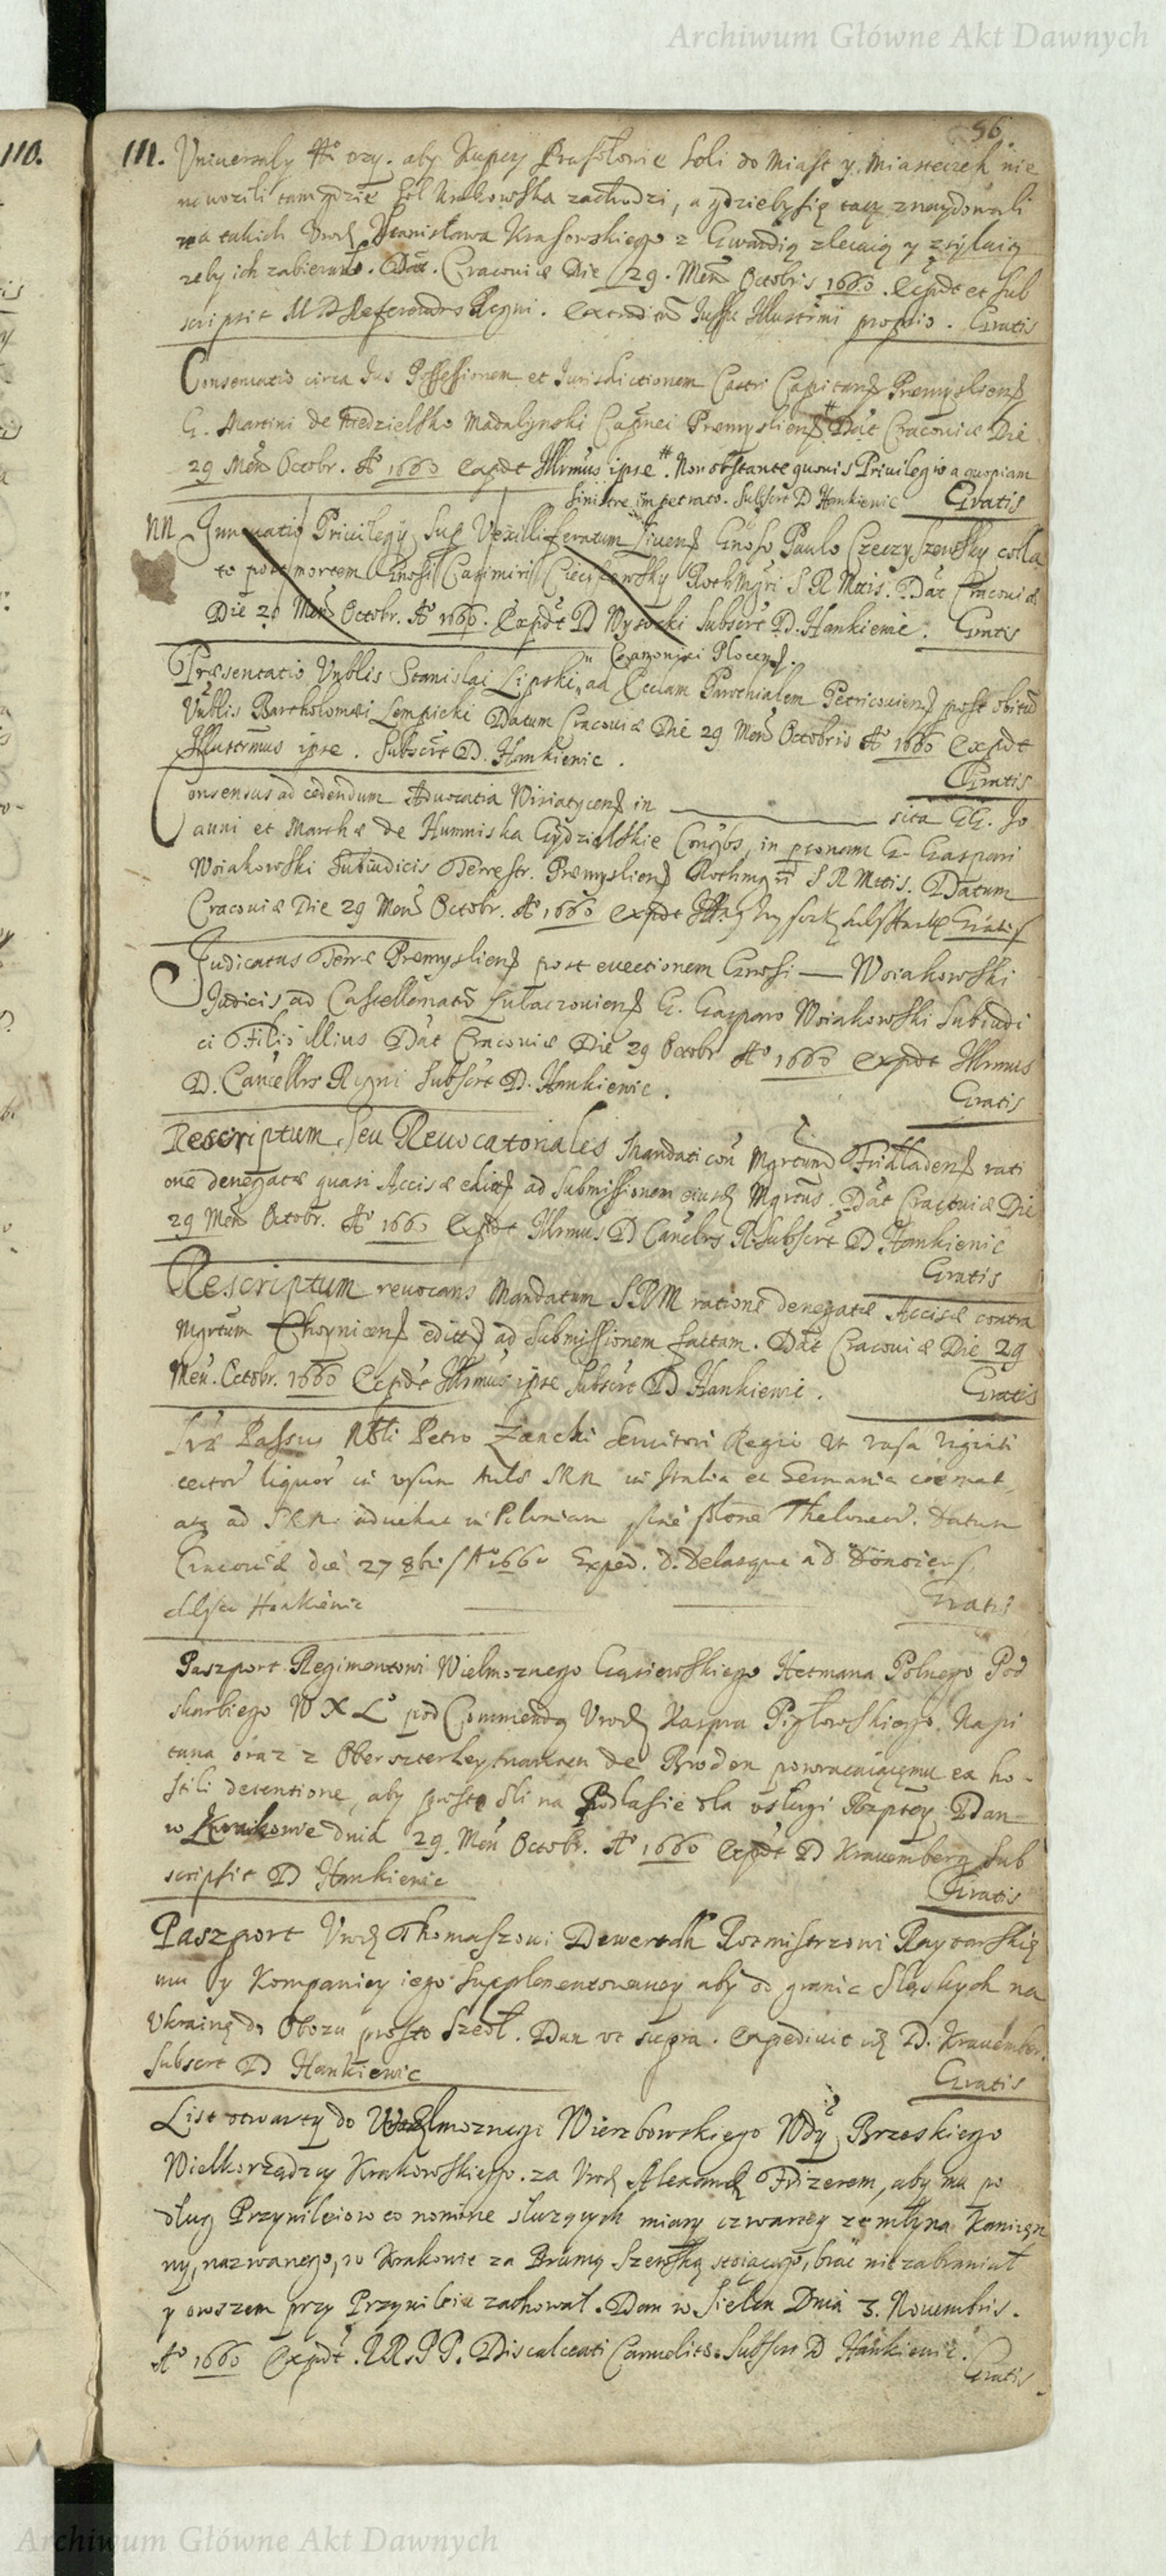 Archiwum Główne Akt Dawnych
56
110.
111. Uniuersały No try. aby Kupcy Prasołowie Soli do Miast y Miasteczek nie
nawozili tam gdzie Sól Krakowska zachodzi, a gdzieby się tacy znaydowali
na takich Urodz Stanisława Krasowskiego z Gwardią zlecaią y zsyłaią
zeby ich zabierano. Dat. Cracouiæ Die 29. Mens Octobris 1660. Expdt et Sub
scripsit M D Referendars Regni. extraditũ Jussu Illustrmi proprio. Gratis
Conseruatio circa Jus Possessionem et Jurisdictionem Castri Capitans Præmysliens
G. Martini de Niedzielsko Madalynski Capnei Præmysliens # Dat Cracouiæ Die
29 Mens Octobr. Ao 1660 Expdt Illrmus ipse #. Non obstante quouis Priuilegio a quopiam
sinistre impetrato. Subscrt D Hankiewic Gratis
NN Innouatio Priuilegÿ Sup Vexilliferatum Liuens Gnoso Paulo Czeczyszewsky colla
to post mortem Gnosi Casimiri Cieciszewsky Rothmgri S R Mtis. Dat Cracouiæ
Die 29 Mens Octobr. Ao 1660. Expdt D Wysocki Subscrt D. Hankiewic. Gratis
Canonici Plocens.
Præsentatio Vnblis Stanislai Lipski ad Ecclam Parochialem Petricouiens post obitũ
Vnblis Bartholomæi Lempicki Datum Cracouiæ Die 29 Mens Octobris Ao 1660 Expdt
Illustrmus ipse. Subscrt D. Hankiewic.
Gratis
Consensus ad cedendum Aduocatia Winiatycens in sita GG. Jo
anni et Marthæ de Humniska Gydzielskie Congbs, in psonam G. Gaspari
Woiakowski Subiudicis Terrestr. Præmysliens Rothmgri S R Mttis. Datum
Cracouiæ Die 29 Mens Octobr. Ao 1660 Expdt Gratis
Judicatus Terræ Præmysliens post euectionem Gnosi — Woiakowski
Judicis ad Castellanatũ Lubaczouiens G. Gasparo Woiakowski Subiudi
ci Filio illius Dat Cracouiæ Die 29 Octobr Ao 1660 Expdt Illrmus
D. Cancellrs Regni Subscrt D. Hankiewic.
Gratis
Rescriptum Seu Reuocatoriales Mandati con Mgrtum Fridladens rati
one denegatæ quasi Accisæ editi ad Submissionem eiusd Mgrtus. Dat Cracouiæ Die
29 Mens Octobr. Ao 1660 Expdt Illrmus D Cancllrs R Subscrt D Hankiewic
Gratis
Rescriptum reuocans Mandatum SRM ratione denegatæ Accisæ contra
Mgrtum Choynicens editũ ad Submissionem factam. Dat Cracouiæ Die 29
Men. Octobr. 1660 Expdt Illrmus ipse Subscrt D Hankiewic.
Gratis
Passus Nbli Petro Zancki Seruitori Regio ut vasa
liquor in vsum Aulæ SRM in Italia et Germania coemat
atq ad SRM aduehat in Poloniam sine Theloneor. Datum
Cracouiæ die 27 8bris Ao 1660 Exped. D. Delasqui ad
Hankiewic Gratis
Paszport Regimentowi Wielmoznego Gąsiewskiego Hetmana Polnego Pod
skarbiego W X L pod Commendą Urodz Kaspra Pigłowskiego Kapi
tana oraz z Oberszterleytnantem de Broden powracaiącemu ex ho-
stili detentione, aby prosto śli na Podlasie dla vsługi Rzptey Dan
w Krakowie dnia 29. Men Octobr. Ao 1660 Expdt D Krauemberg Sub
scripsit D Hankiewic
Gratis
Paszport Urodz Thomaszowi Dewertdh Rotmistrzowi Raytarskię
mu y Kompaniey iego Supplementowaney aby od granic Sląskych na
Ukrainę do Obozu prosto Szedł. Dan vt supra. expediuit id D. Krauember.
Subscrt D Hankiewic
Gratis
List otwarty do Wielmoznego Wierzbowskiego Wdy Brzeskiego
Wielkorządzcy Krakowskiego. za Urodz Alexand Frizerem, aby mu po
dług Przywileiow eo nomine sluzących miary czwartey ze młyna Kamien
ny, nazwanego, w Krakowie za Bramą Szewską stoiącego, brać nie zabraniał
y owszem przy Przywileiu zachował. Dan w Sielcu Dnia 3. Nouembris.
Ao 1660 Expdt. RR. PP. Discalceati Carmelitæ. Subscrt D Hankiewic.
Gratis
Archiwum Główne Akt Dawnych